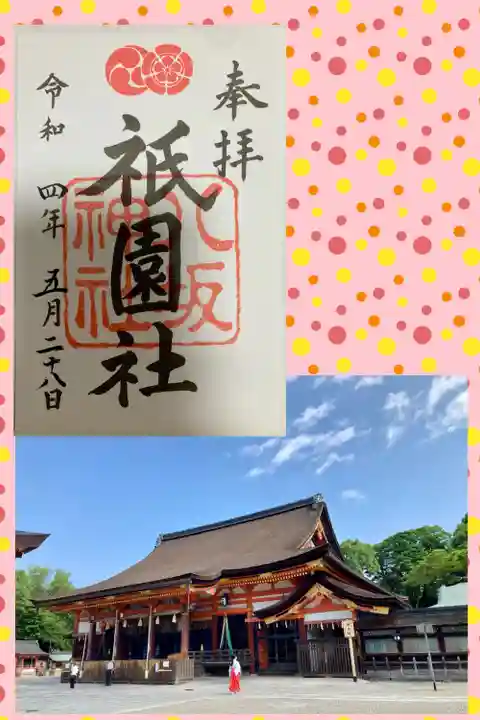 奉拝
祇園社
八坂
神社
令和四年五月二十八日